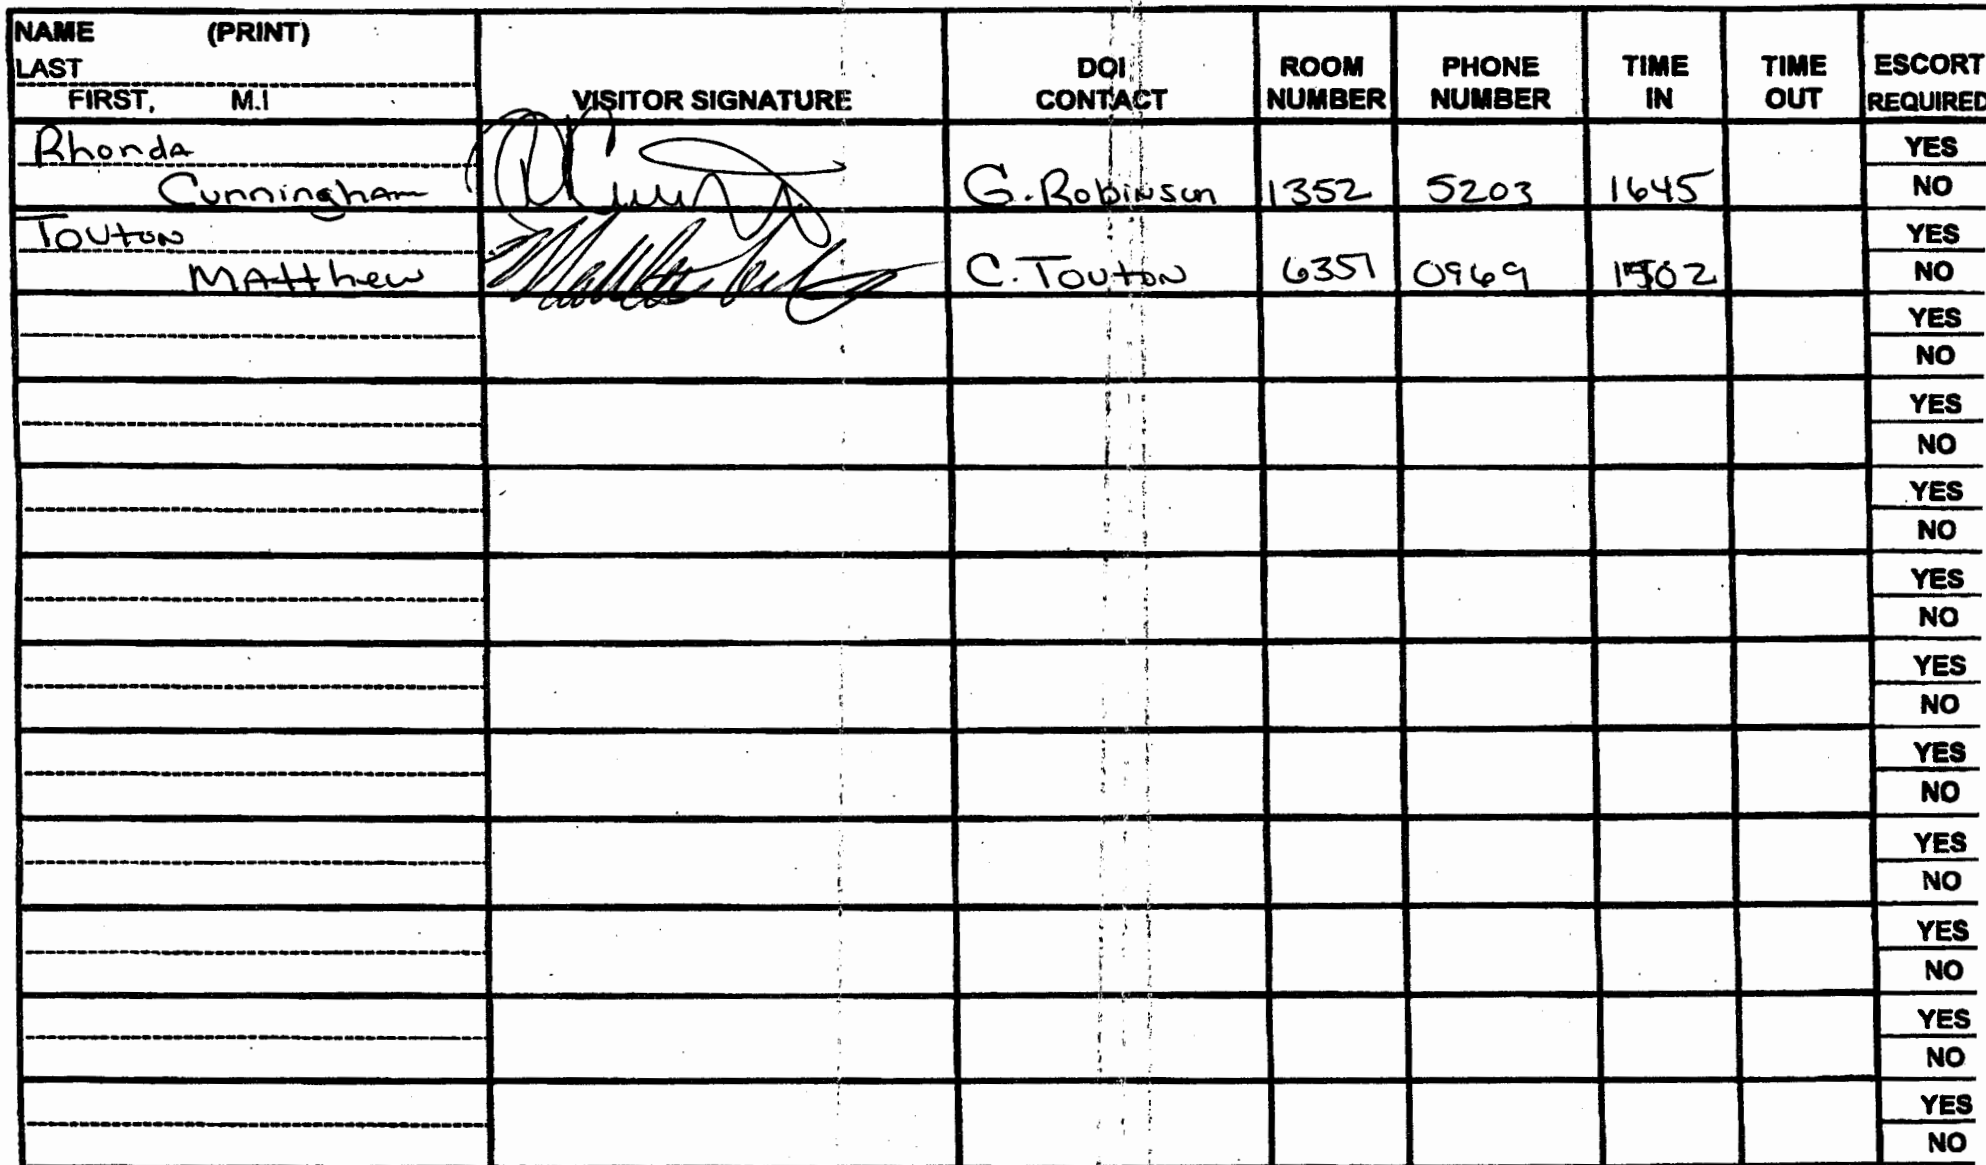 NAME (PRINT)
LAST
FIRST, M.I
VISITOR SIGNATURE
DOI
CONTACT
ROOM
NUMBER
PHONE
NUMBER
TIME
IN
TIME
OUT
ESCORT
REQUIRED
Rhonda
Cunningham
G. Robinson 1352 5203 1645
YES
NO
Touton
Matthew
C. Touton 6351 0969
YES
NO
YES
NO
YES
NO
YES
NO
YES
NO
YES
NO
YES
NO
YES
NO
YES
NO
YES
NO
YES
NO